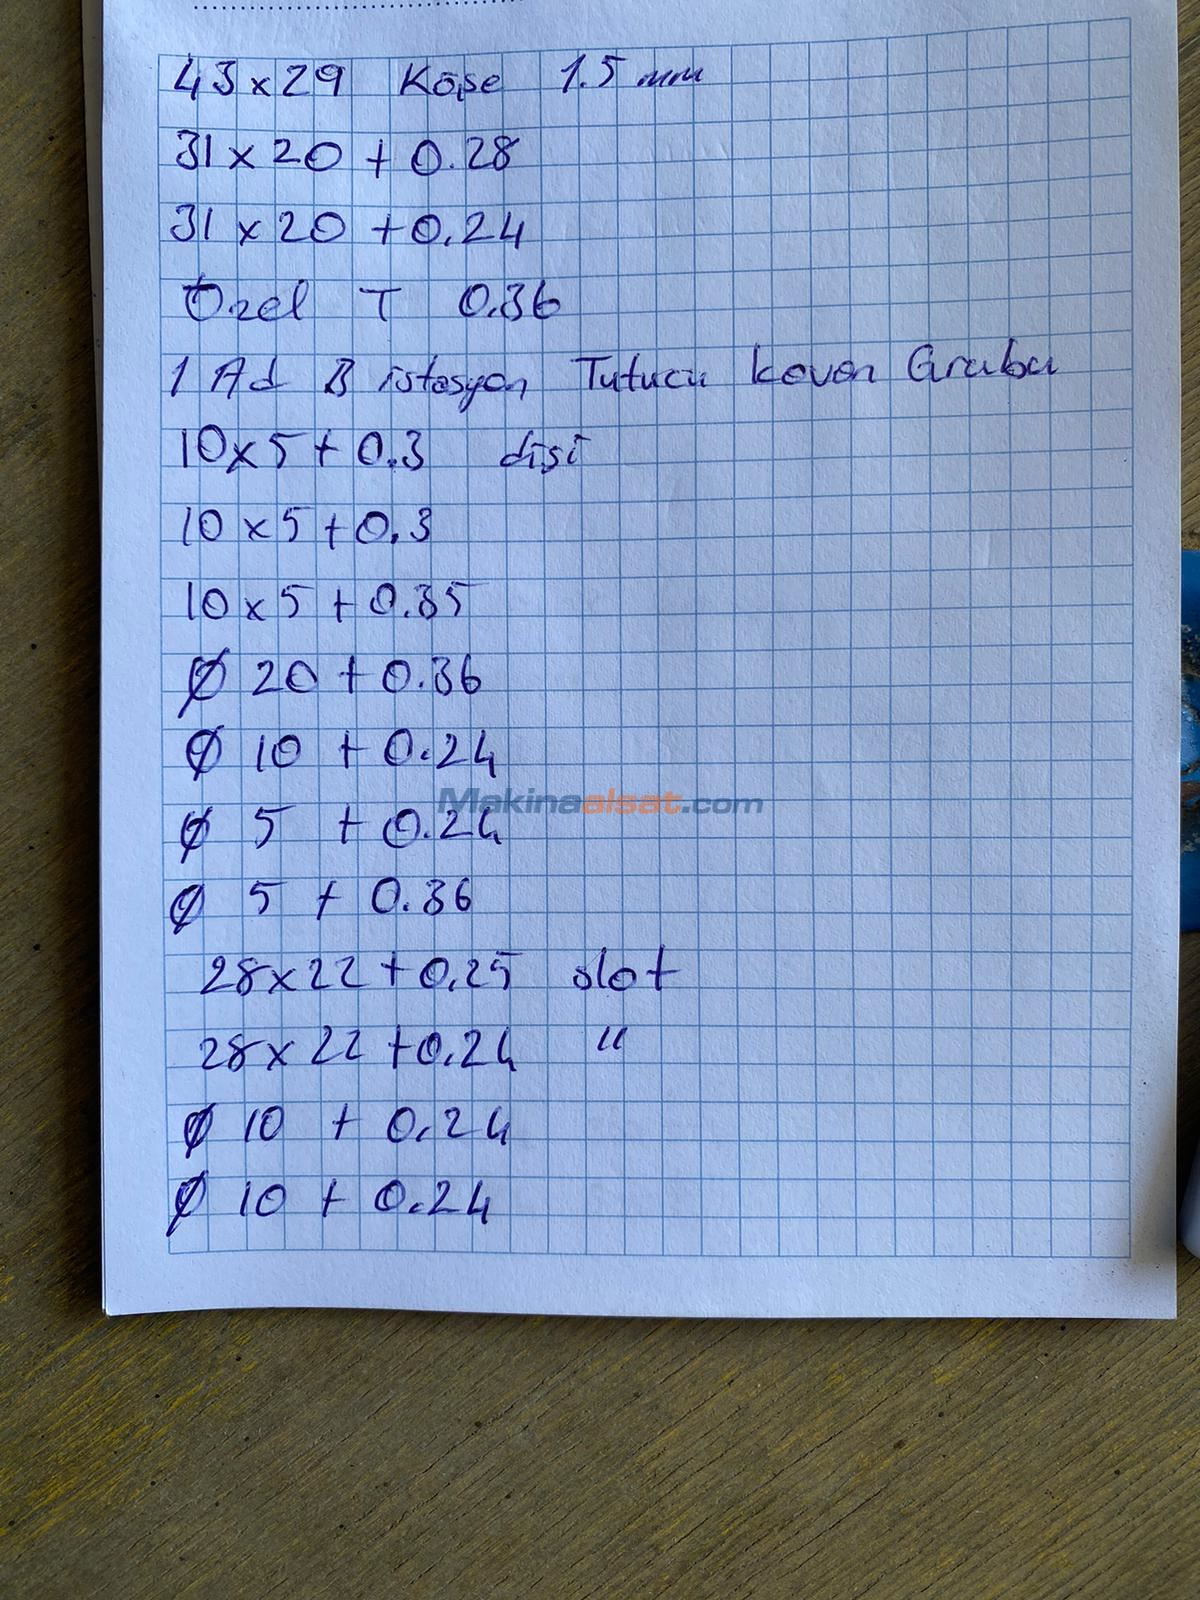 43x29 Köşe 1.5 mm
31x20 +0.28
31x20 +0.24
Özel T 0.36
1 Ad B istasyon Tutucu kovan Grubu
10x5+0.3 dişi
10x5+0.3
10x5+0.35
Ø 20 +0.36
Ø 10 +0.24
Makinaalsat.com
Ø 5 +0.24
Ø 5 + 0.36
28x22+0.25 slot
28x22+0.24 "
Ø 10 + 0.24
Ø 10 + 0.24